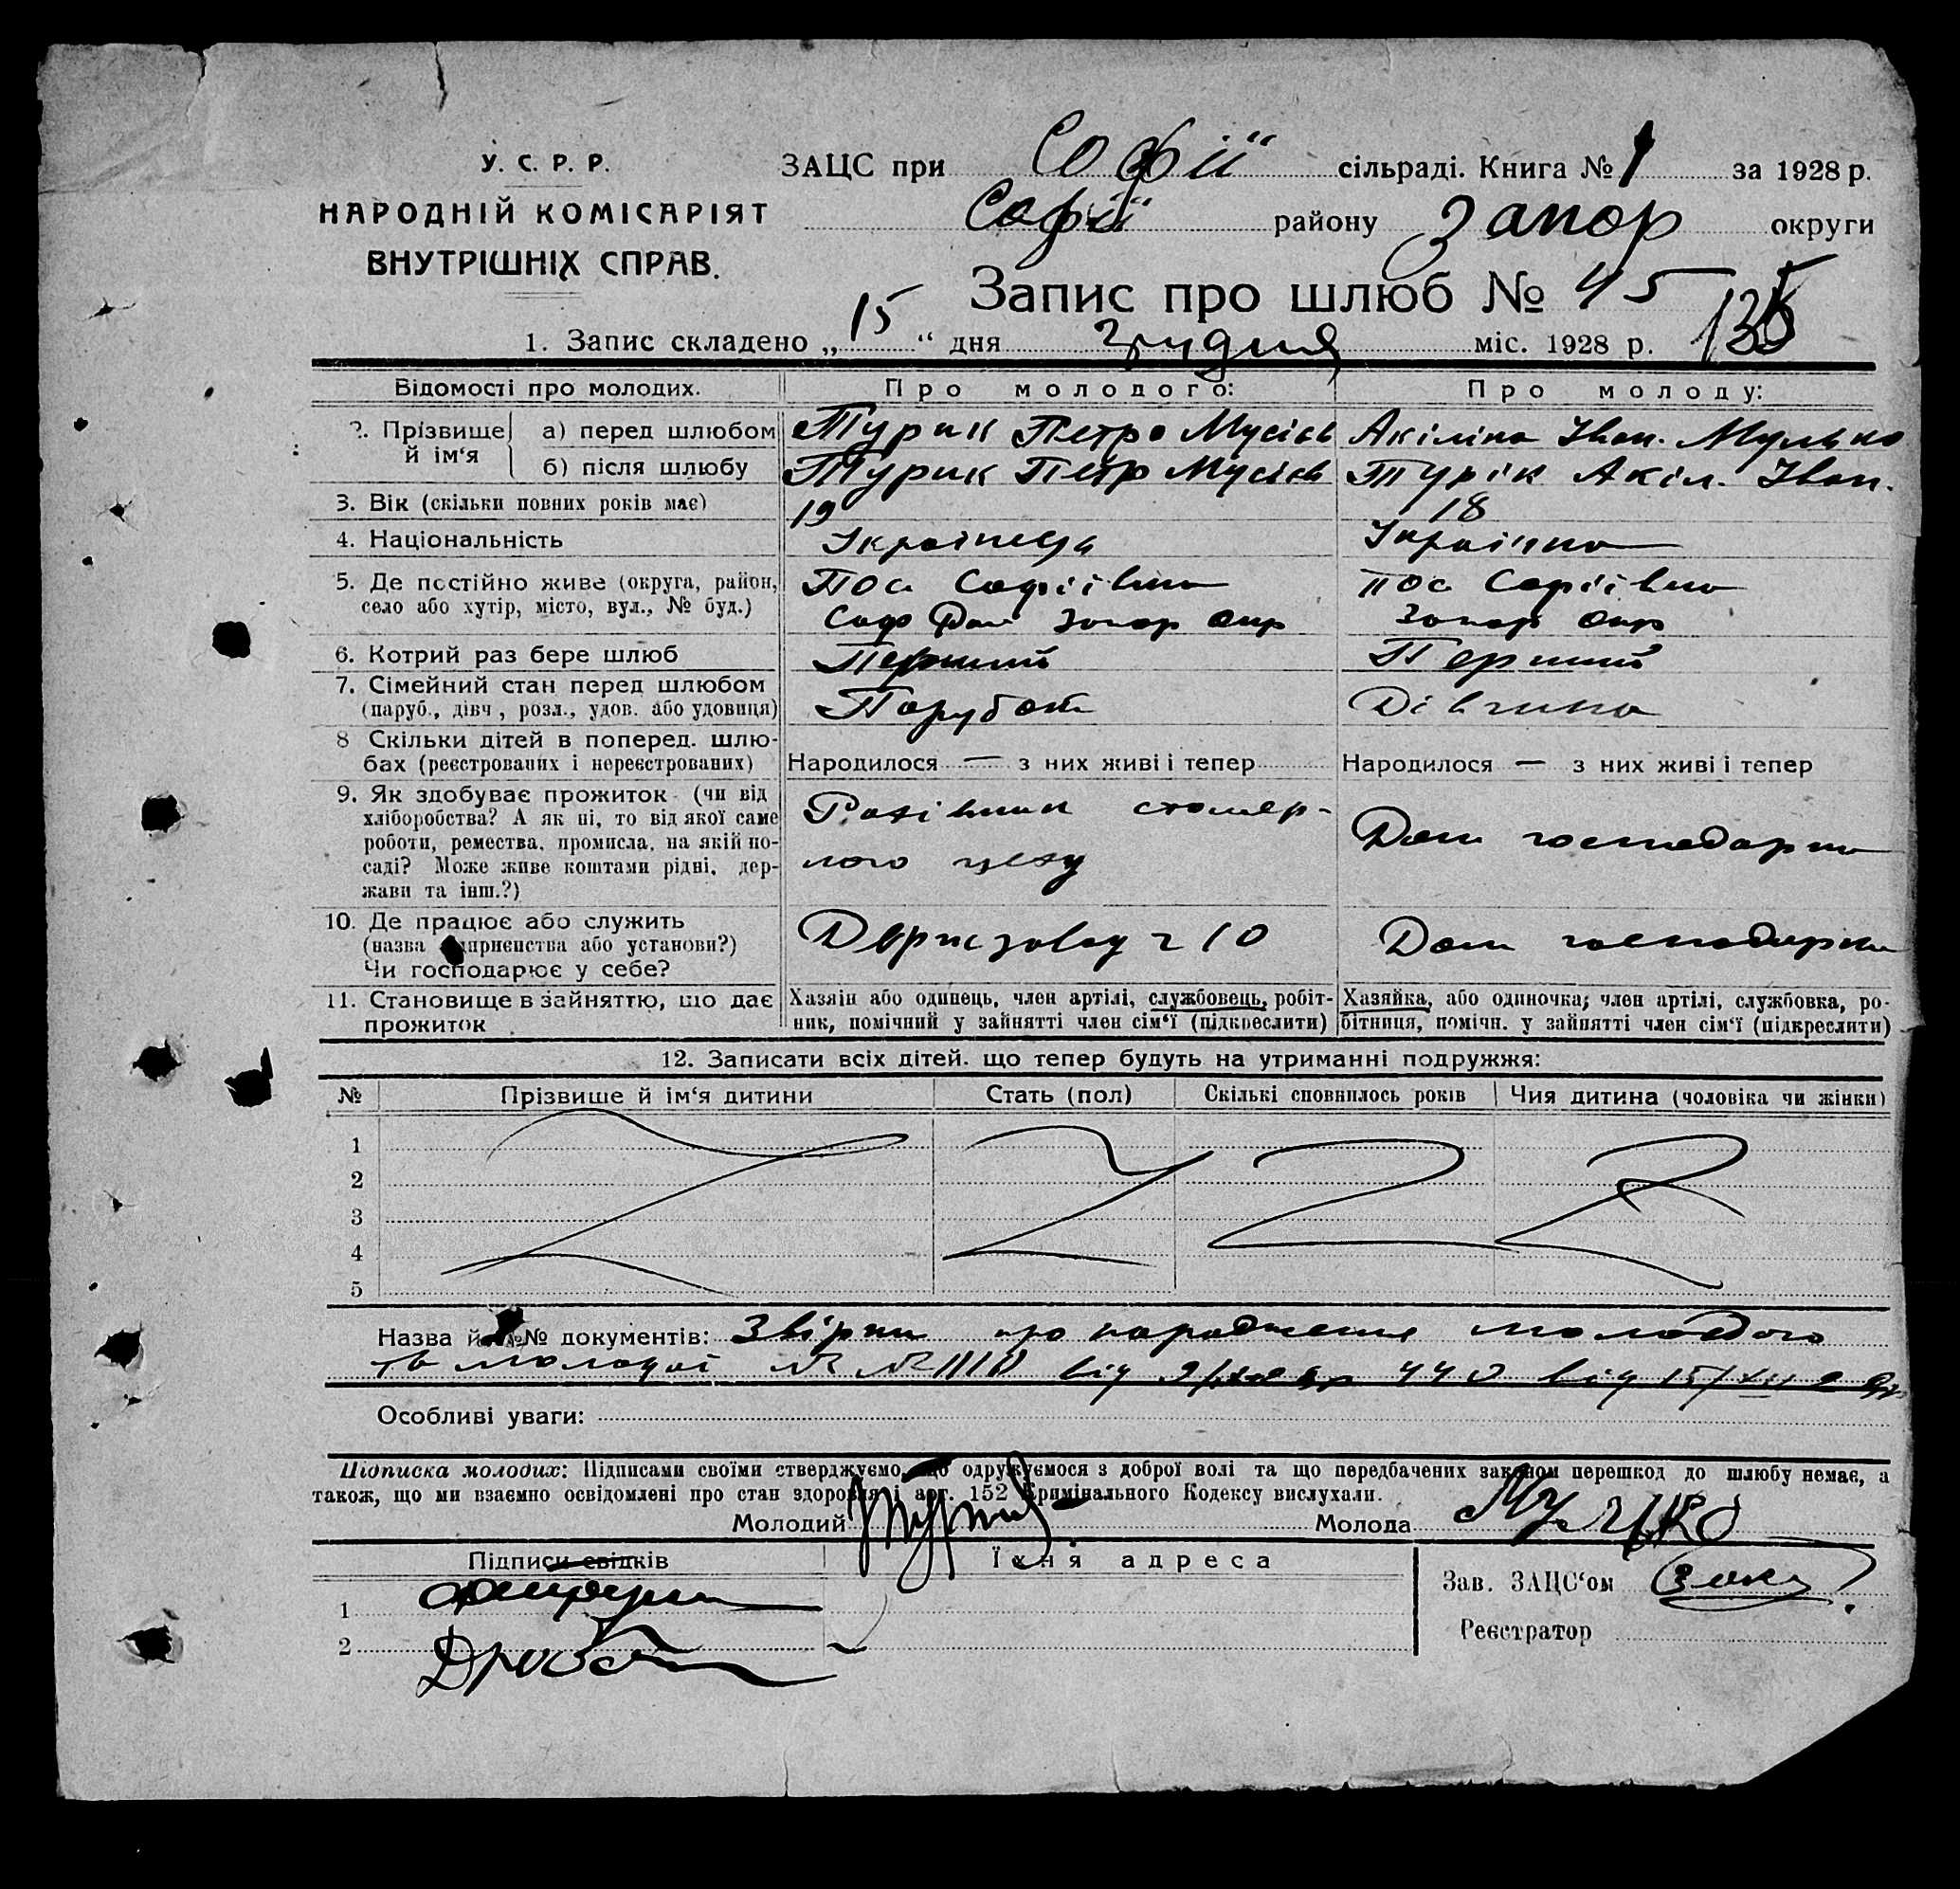 У. С. Р. Р.
НАРОДНІЙ КОМІСАРІЯТ
ВНУТРІШНІХ СПРАВ.
ЗАЦС при Софії сільраді. Книга № 1 за 1928 р.
Софії району Запор округи
Запис про шлюб № 45
1. Запис складено „15“ дня грудня міс. 1928 р.
Відомості про молодих. Про молодого: Про молоду:
2. Прізвище й ім‘я
а) перед шлюбом Турик Петро Мусієв Акіліна Іван. Мулько
б) після шлюбу Турик Петр Мусієв Турік Акіл. Іван.
3. Вік (скільки повних років має) 19 18
4. Національність Українець Українка
5. Де постійно живе (округа, район, Пос Софіївка пос Софіївка
село або хутір, місто, вул., № буд.) Соф Запор Окр Запор Окр
6. Котрий раз бере шлюб Перший Перший
7. Сімейний стан перед шлюбом
(паруб., дівч., розл., удов. або удовиця) Парубок Дівчина
8 Скільки дітей в поперед. шлю-
бах (реєстрованих і нереєстрованих) Народилося — з них живі і тепер Народилося — з них живі і тепер
9. Як здобуває прожиток (чи від
хліборобства? А як ні, то від якої саме
роботи, ремества, промисла, на якій по-
саді? Може живе коштами рідні, дер-
жави та інш.?)
столяр-
ного цеху
Дом господарка
10. Де працює або служить
(назва підприємства або установи?)
Чи господарює у себе?
Держзавод 10 Дом господарка
11. Становище в зайняттю, що дає
прожиток
Хазяін або одинець, член артілі, службовець, робіт-
ник, помічний у зайнятті член сім‘ї (підкреслити)
Хазяйка, або одиночка; член артілі, службовка, ро-
бітниця, помічн. у зайнятті член сім‘ї (підкреслити)
12. Записати всіх дітей. що тепер будуть на утриманні подружжя:
№ Прізвище й ім‘я дитини Стать (пол) Скількі сповнилось років Чия дитина (чоловіка чи жінки)
1
2
3
4
5
Назва й №№ документів: про народження молодого
та молодої № № від 440 від 15/XII
Особливі уваги:
Підписка молодих: Підписами своїми стверджуемо, що одружуємося з доброї волі та що передбачених законом перешкод до шлюбу немає, а
також, що ми взаємно освідомлені про стан здоровля і арт. 152 Кримінального Кодексу вислухали.
Молодий Молода Мулько
Підписи свідків Їхня адреса
Зав. ЗАЦС‘ом
1
Реєстратор
2